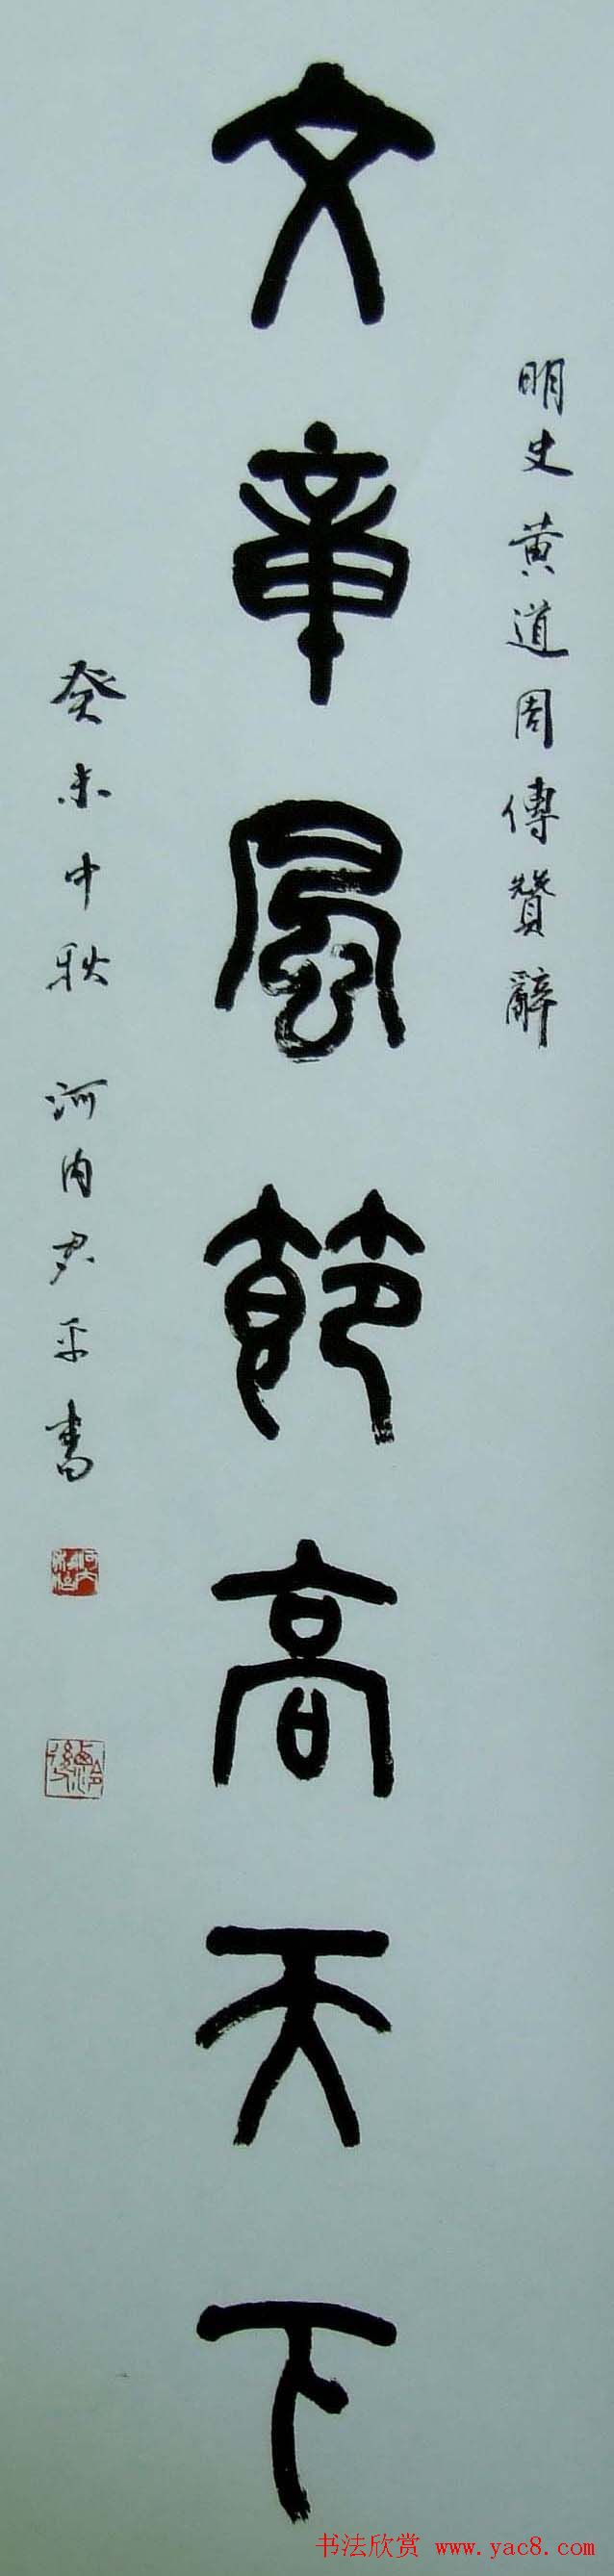 明史黄道周傳贊辭
文章風節高天下
癸未中秋 河内君平書
书法欣赏 www.yac8.com